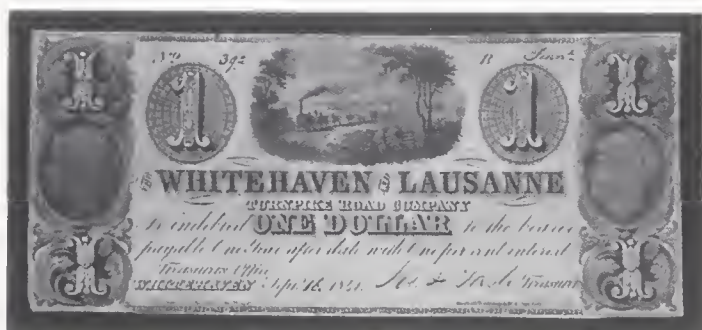 1 No 392 B Penna 1
1 1
THE WHITEHAVEN AND LAUSANNE
TURNPIKE ROAD COMPANY
is indebted ONE DOLLAR to the bearer
payable one year after date with one per cent interest
Treasurers Office
WHITEHAVEN Sept 18, Treasurer
1 1